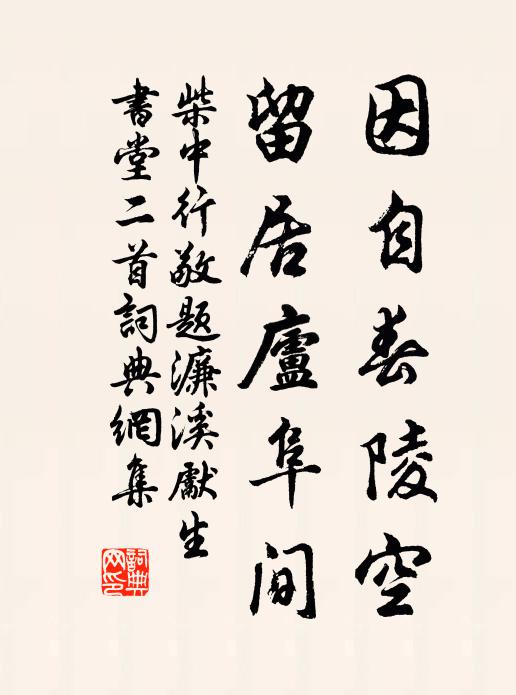 因自舂陵空
留居廬阜间
柴中行敬题濂溪獻生
書堂二首詞典網集
詞典网印